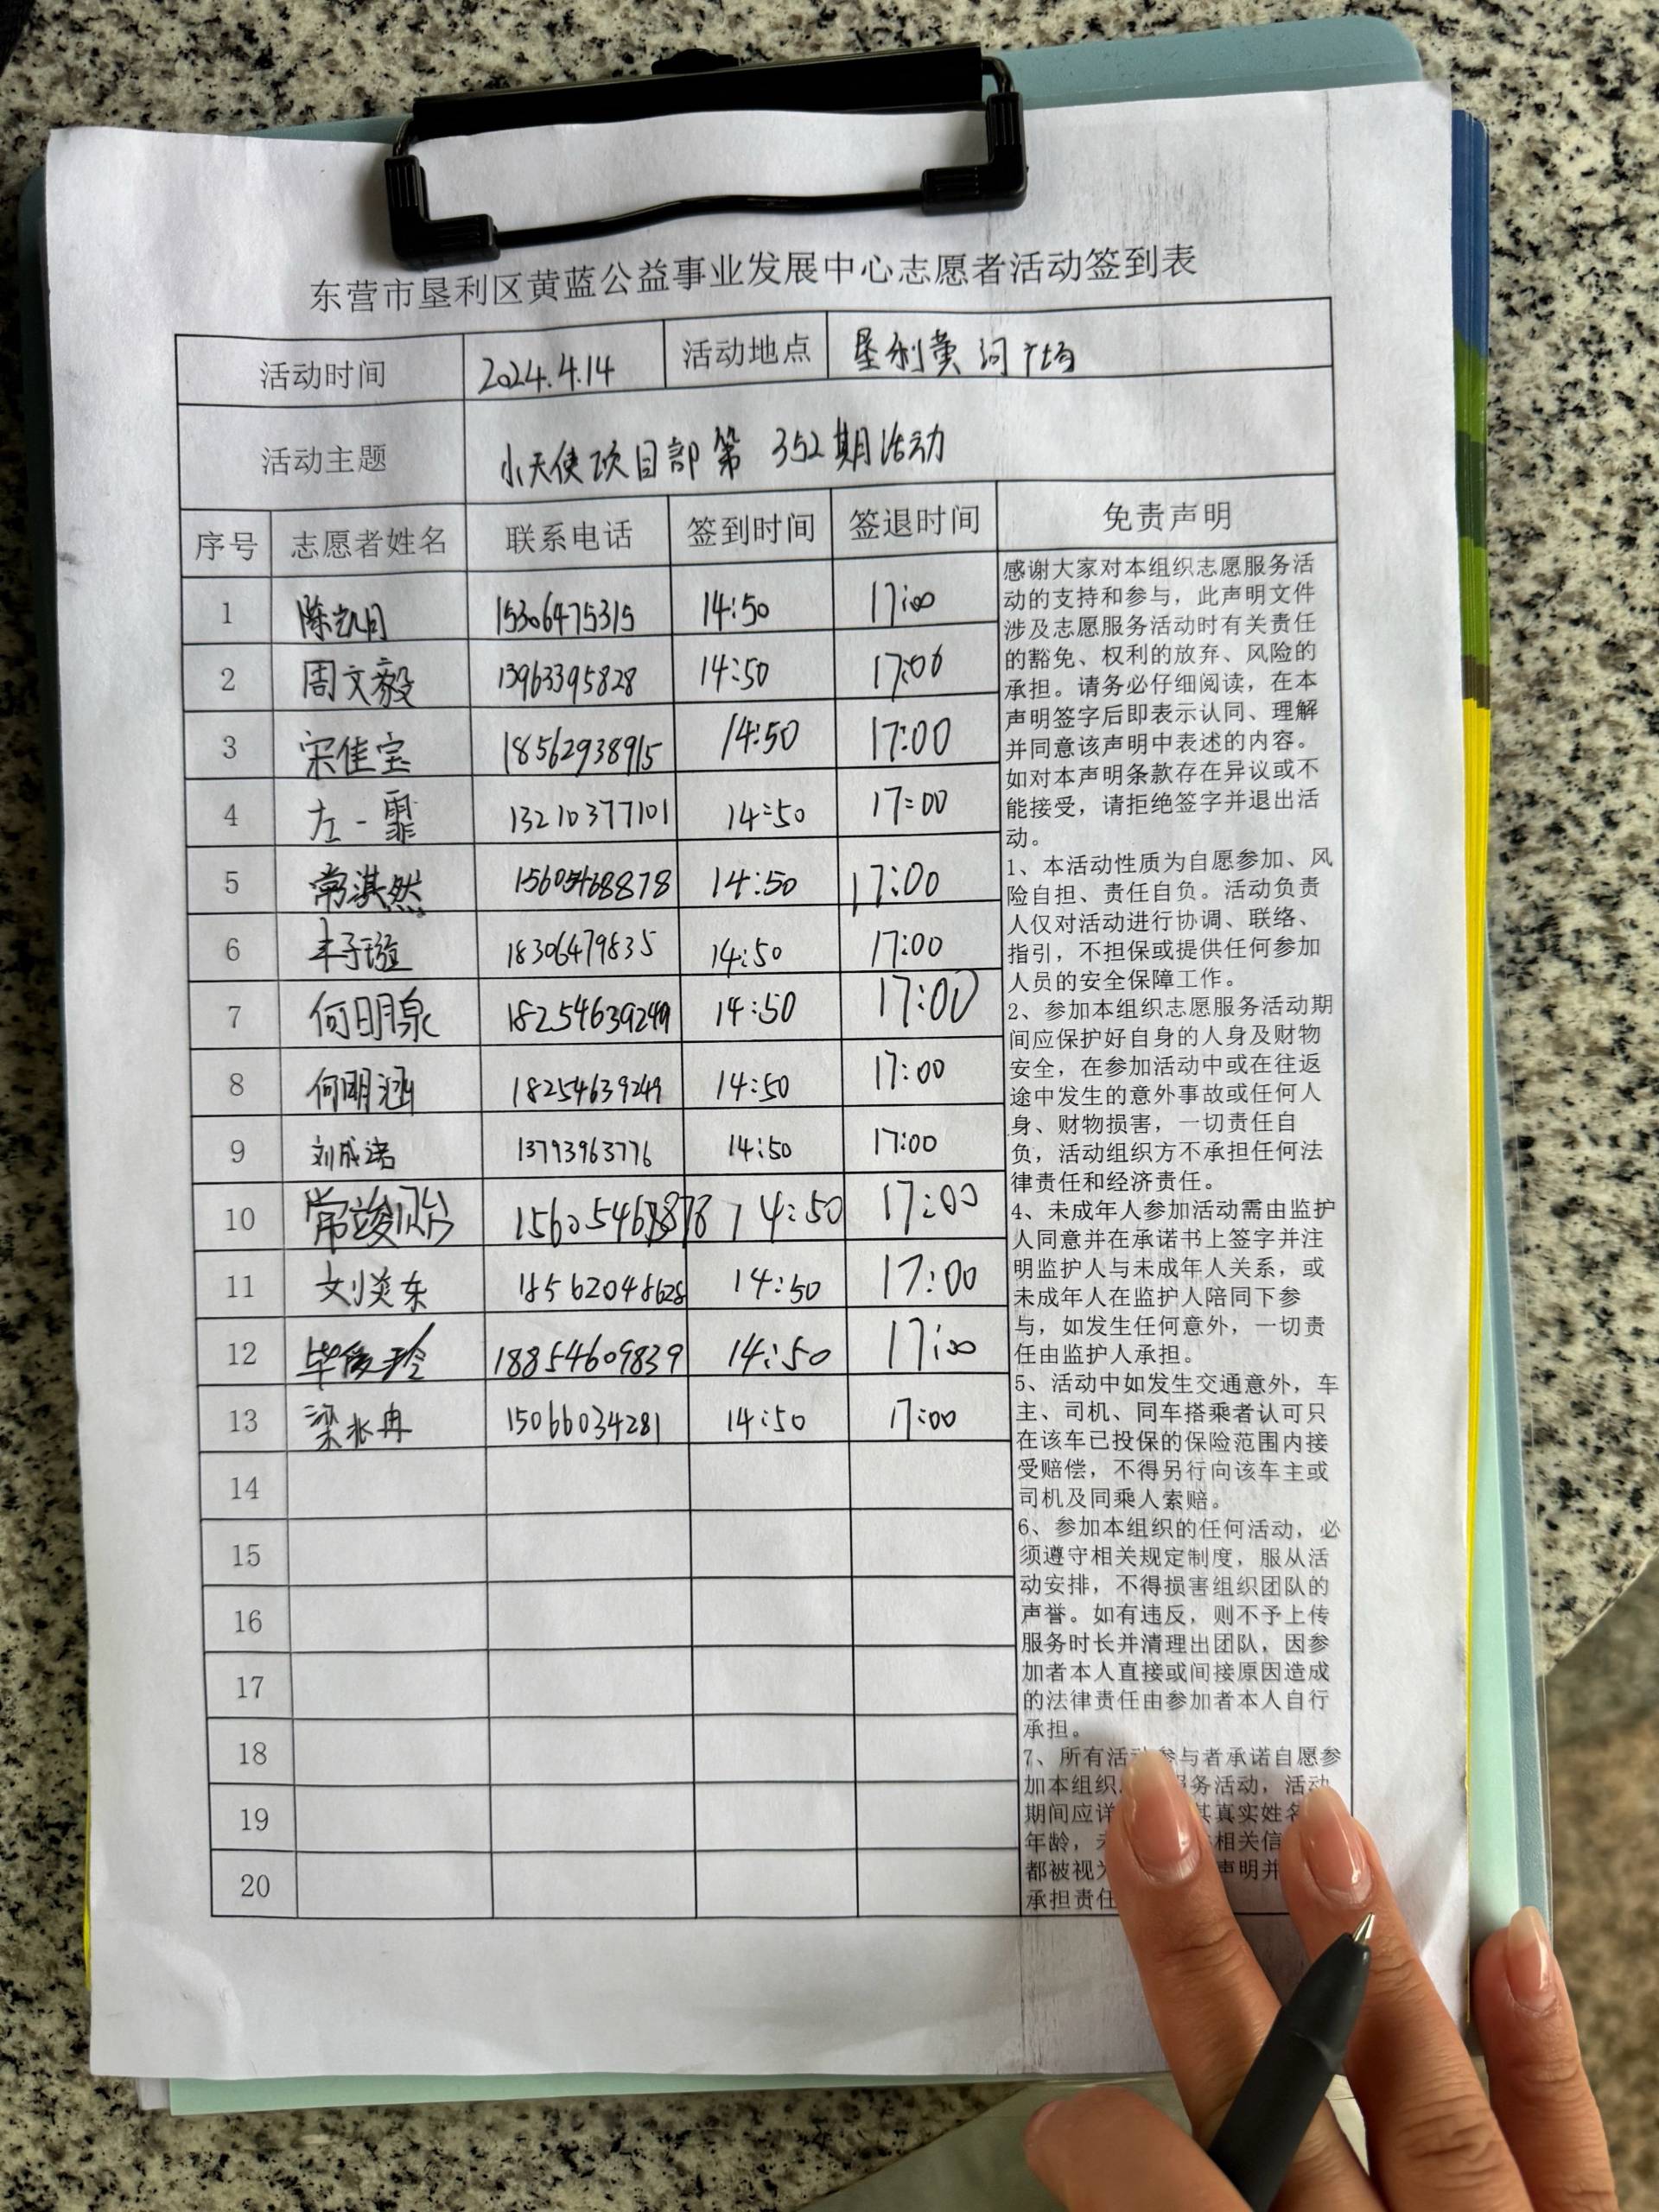 东营市垦利区黄蓝公益事业发展中心志愿者活动签到表
活动时间 2024.4.14 活动地点 垦利黄河广场
活动主题 小天使项目部第352期活动
序号 志愿者姓名 联系电话 签到时间 签退时间 免责声明
1 陈凯月 15306475315 14:50 17:00
2 周文毅 13963395828 14:50 17:00
3 宋佳宝 18562938915 14:50 17:00
4 左一霏 13210377101 14:50 17:00
5 常淇然 15605468878 14:50 17:00
6 丰子璇 18306479835 14:50 17:00
7 何明泉 18254639249 14:50 17:00
8 何明涵 18254639249 14:50 17:00
9 刘成诺 13793963776 14:50 17:00
10 常竣贻 15605468878 14:50 17:00
11 刘炎东 18562048628 14:50 17:00
12 毕俊玲 18854609839 14:50 17:00
13 梁冉 15066034281 14:50 17:00
14
15
16
17
18
19
20
感谢大家对本组织志愿服务活
动的支持和参与，此声明文件
涉及志愿服务活动时有关责任
的豁免、权利的放弃、风险的
承担。请务必仔细阅读，在本
声明签字后即表示认同、理解
并同意该声明中表述的内容。
如对本声明条款存在异议或不
能接受，请拒绝签字并退出活
动。
1、本活动性质为自愿参加、风
险自担、责任自负。活动负责
人仅对活动进行协调、联络、
指引，不担保或提供任何参加
人员的安全保障工作。
2、参加本组织志愿服务活动期
间应保护好自身的人身及财物
安全，在参加活动中或在往返
途中发生的意外事故或任何人
身、财物损害，一切责任自
负，活动组织方不承担任何法
律责任和经济责任。
4、未成年人参加活动需由监护
人同意并在承诺书上签字并注
明监护人与未成年人关系，或
未成年人在监护人陪同下参
与，如发生任何意外，一切责
任由监护人承担。
5、活动中如发生交通意外，车
主、司机、同车搭乘者认可只
在该车已投保的保险范围内接
受赔偿，不得另行向该车主或
司机及同乘人索赔。
6、参加本组织的任何活动，必
须遵守相关规定制度，服从活
动安排，不得损害组织团队的
声誉。如有违反，则不予上传
服务时长并清理出团队，因参
加者本人直接或间接原因造成
的法律责任由参加者本人自行
承担。
7、所有活动参与者承诺自愿参
加本组织 服务活动，活动
期间应详 其真实姓名
年龄， 相关信
都被视为 声明并
承担责任